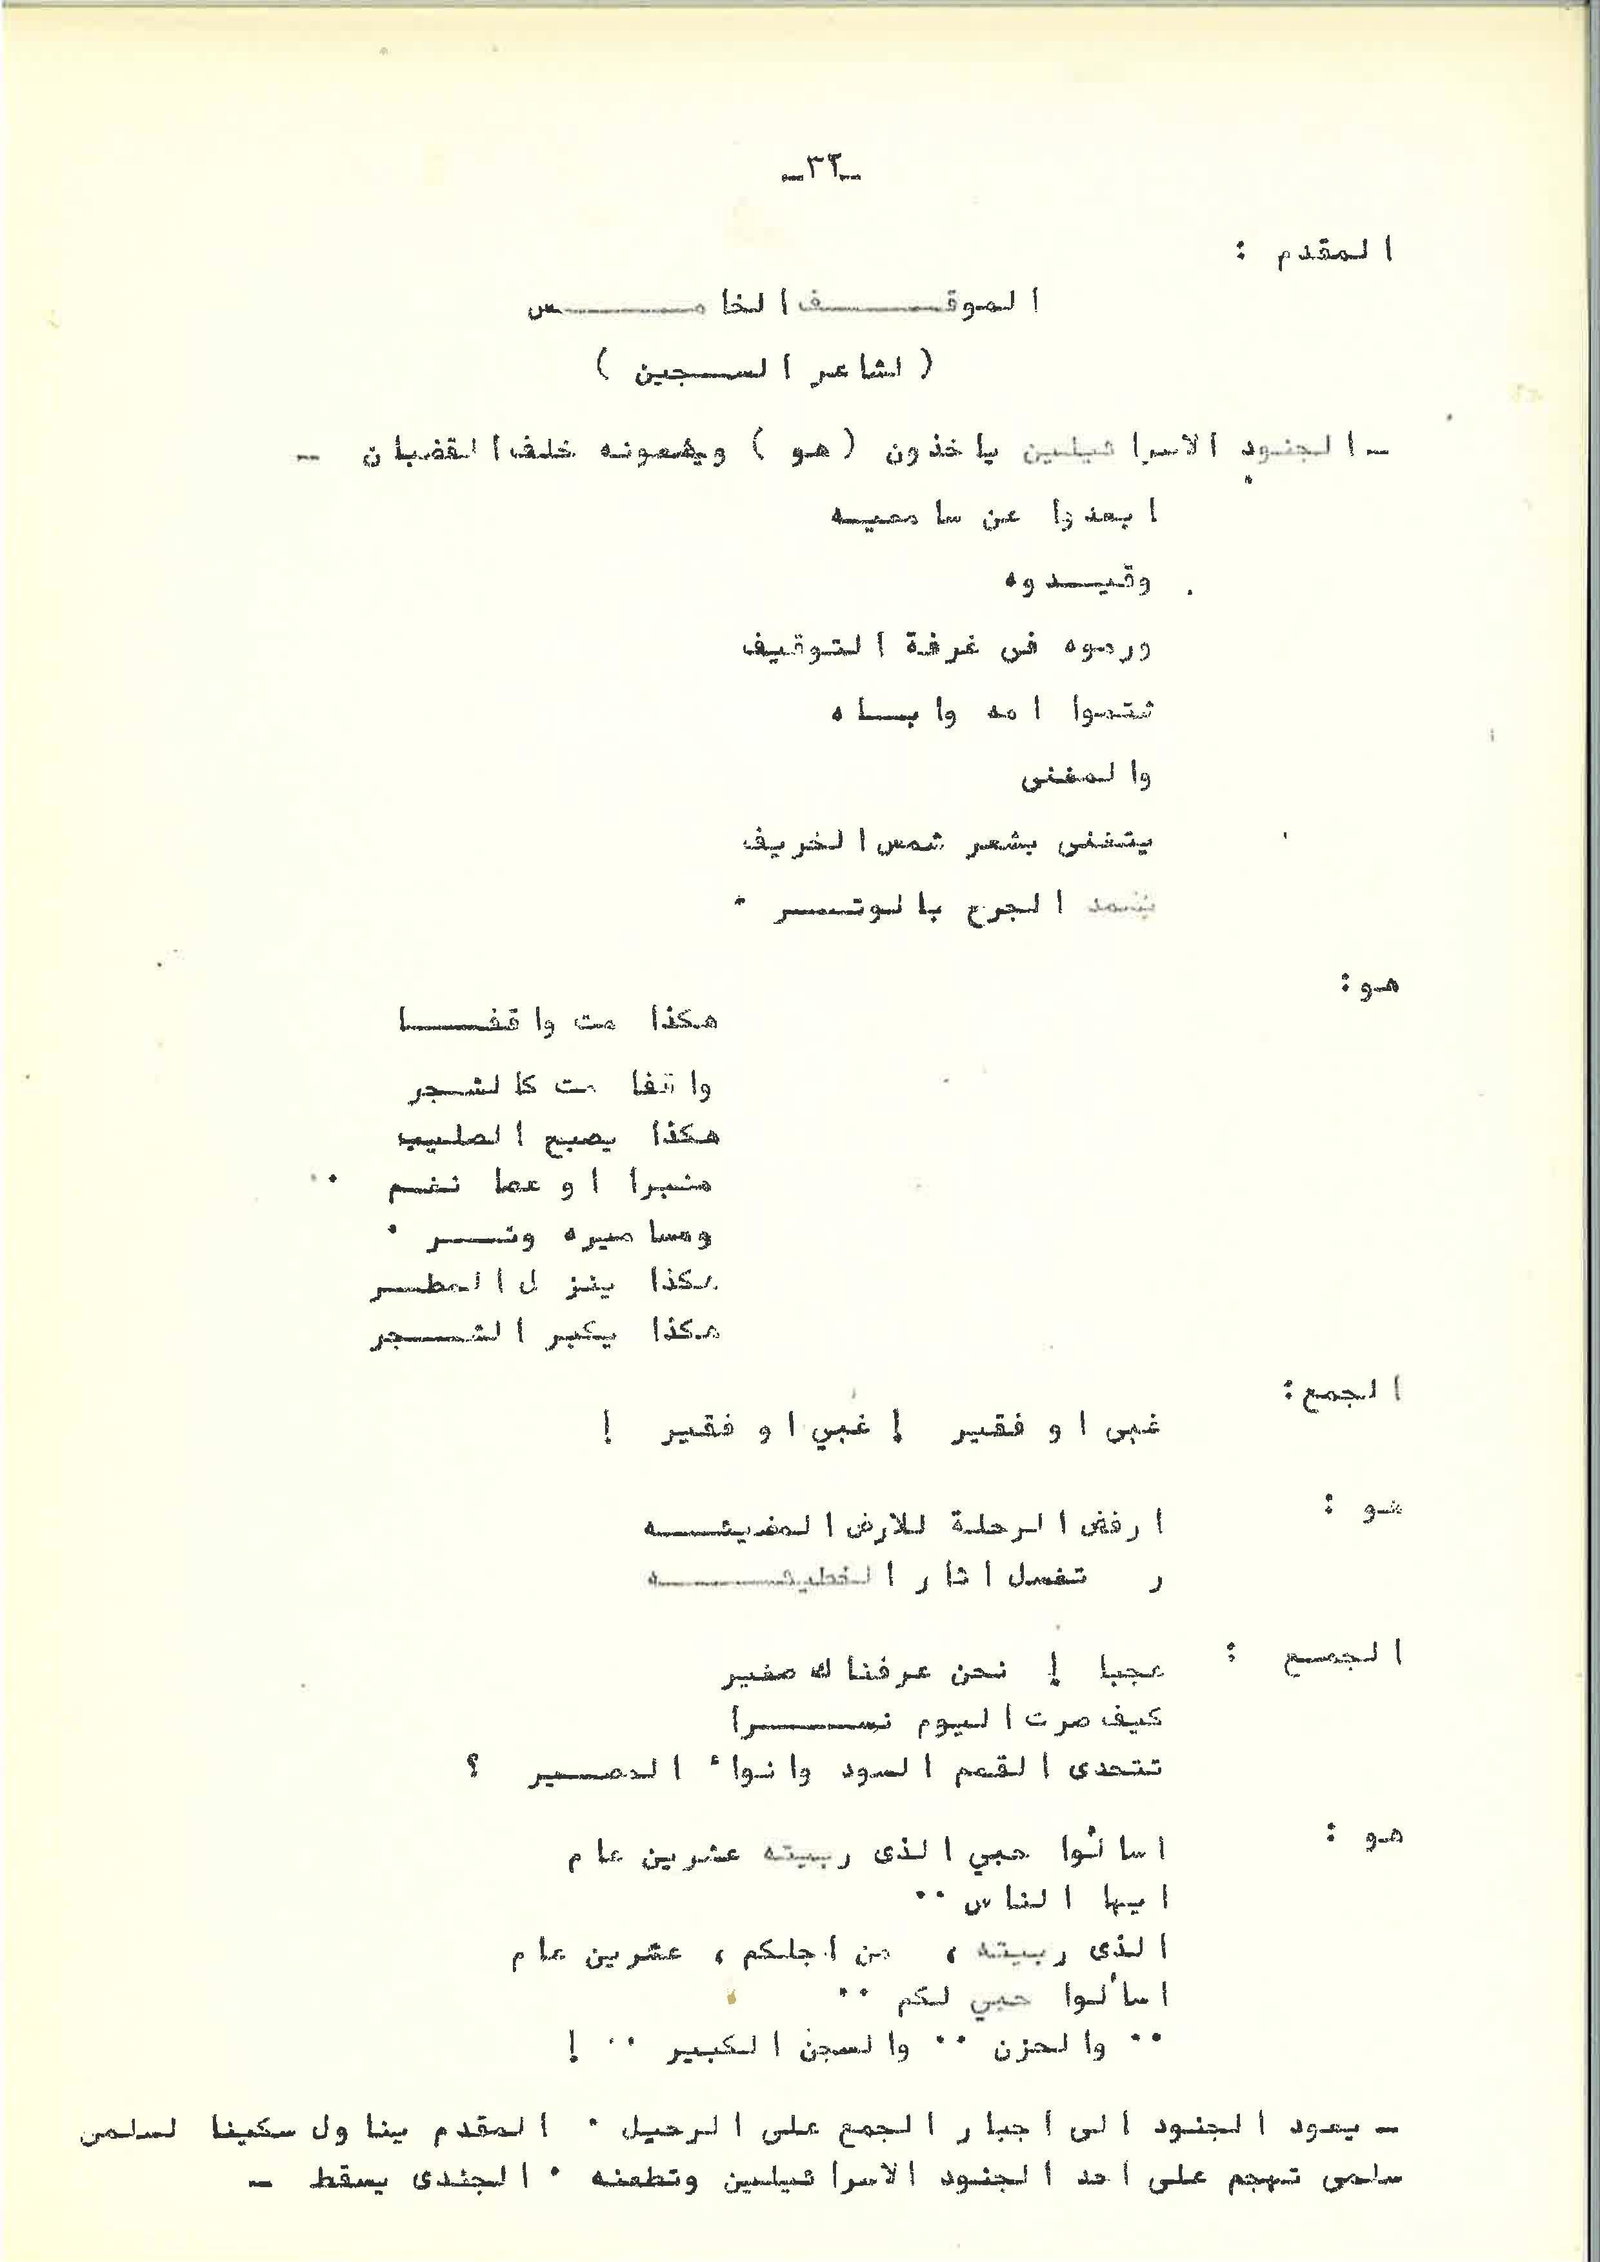 -٣٢-
المقدم :
الموقف الخامس
( لشاعر السجين )
- الجنود الاسرائيليين ياخذون (هو) ويضعونه خلف القضبان -
ابعدوا عن سامعيه
وقيدوه
ورموه في غرفة التوقيف
شتموا امه واباه
والمغنى
يتغنى بشعر شمس الخريف
يضمد الجرح بالوتر .
هو:
هكذا مت واقفا
واقفا مت كالشجر
هكذا يصبح الصليب
منبرا او عصا نغم .
ومساميره وتر .
هكذا ينزل المطر
هكذا يكبر الشجر
الجمع:
غبى او فقير ! غبي او فقير !
هو :
ارفض الرحلة للارض المضيئه
ر تغسل اثار الخطيئه
الجمع :
عجبا ! نحن عرفناك صغير
كيف صرت اليوم نسرا
تتحدى القمم السود وانواء المصير ؟
هو :
اسألوا حبي الذى ربيته عشرين عام
ايها الناس ..
الذى ربيته ، من اجلكم ، عشرين عام
اسألوا حبي لكم ..
.. والحزن .. والسجن الكبير .. !
- يعود الجنود الى اجبار الجمع على الرحيل . المقدم يناول سكينا لسلمى
سلمى تهجم على احد الجنود الاسرائيليين وتطعنه . الجندى يسقط -